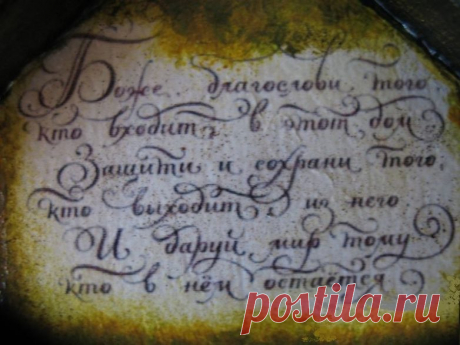 Боже, благослови того,
кто входитъ в этот дом
Защити и сохрани того,
кто выходитъ из него
И даруй мир тому
кто в нём остаётся
postila.ru